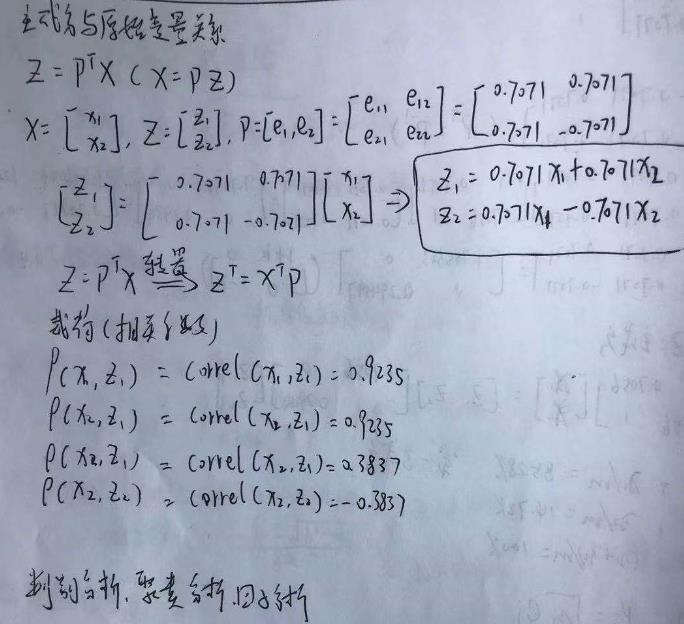 主成分与原始变量关系
Z = PᵀX (X = PZ)
X = [x₁ x₂], Z = [z₁ z₂], P = [e₁, e₂] = [e₁₁ e₁₂ e₂₁ e₂₂] = [0.7071 0.7071 0.7071 -0.7071]
[z₁ z₂] = [0.7071 0.7071 0.7071 -0.7071] [x₁ x₂] ⇒ z₁ = 0.7071x₁ + 0.7071x₂
z₂ = 0.7071x₁ - 0.7071x₂
Z = PᵀX 转置⟹ Zᵀ = XᵀP
载荷(相关系数)
ρ(x₁, z₁) = correl(x₁, z₁) = 0.9235
ρ(x₂, z₁) = correl(x₂, z₁) = 0.9235
ρ(x₂, z₁) = correl(x₂, z₁) = 0.3837
ρ(x₂, z₂) = correl(x₂, z₂) = -0.3837
判别分析. 聚类分析. 因子分析